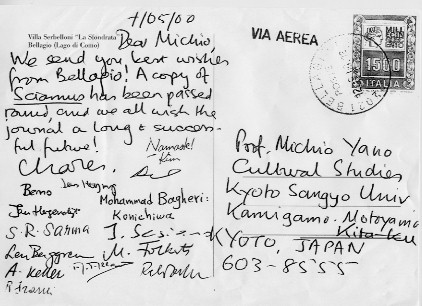 Villa Serbelloni "La Sfondrata"
Bellagio (Lago di Como)
7/05/00
Dear Michio,
We send you kent wishes
from Bellagio! A copy of
Sciamus has been passed
round, and we all wish the
journal a long & success-
ful future!
Namaste!
Kim
Charles.
Benno
Jan Hogendijk
Mohammad Bagheri:
Konichiwa
S.R. Sarma
Len Berggren
M. Folkerts
A. Keller
VIA AEREA
1500
ITALIA
Prof. Michio Yano
Cultural Studies
Kyoto Sangyo Univ
Kamigamo-Motoyama
Kita-ku
KYOTO, JAPAN
603-8555